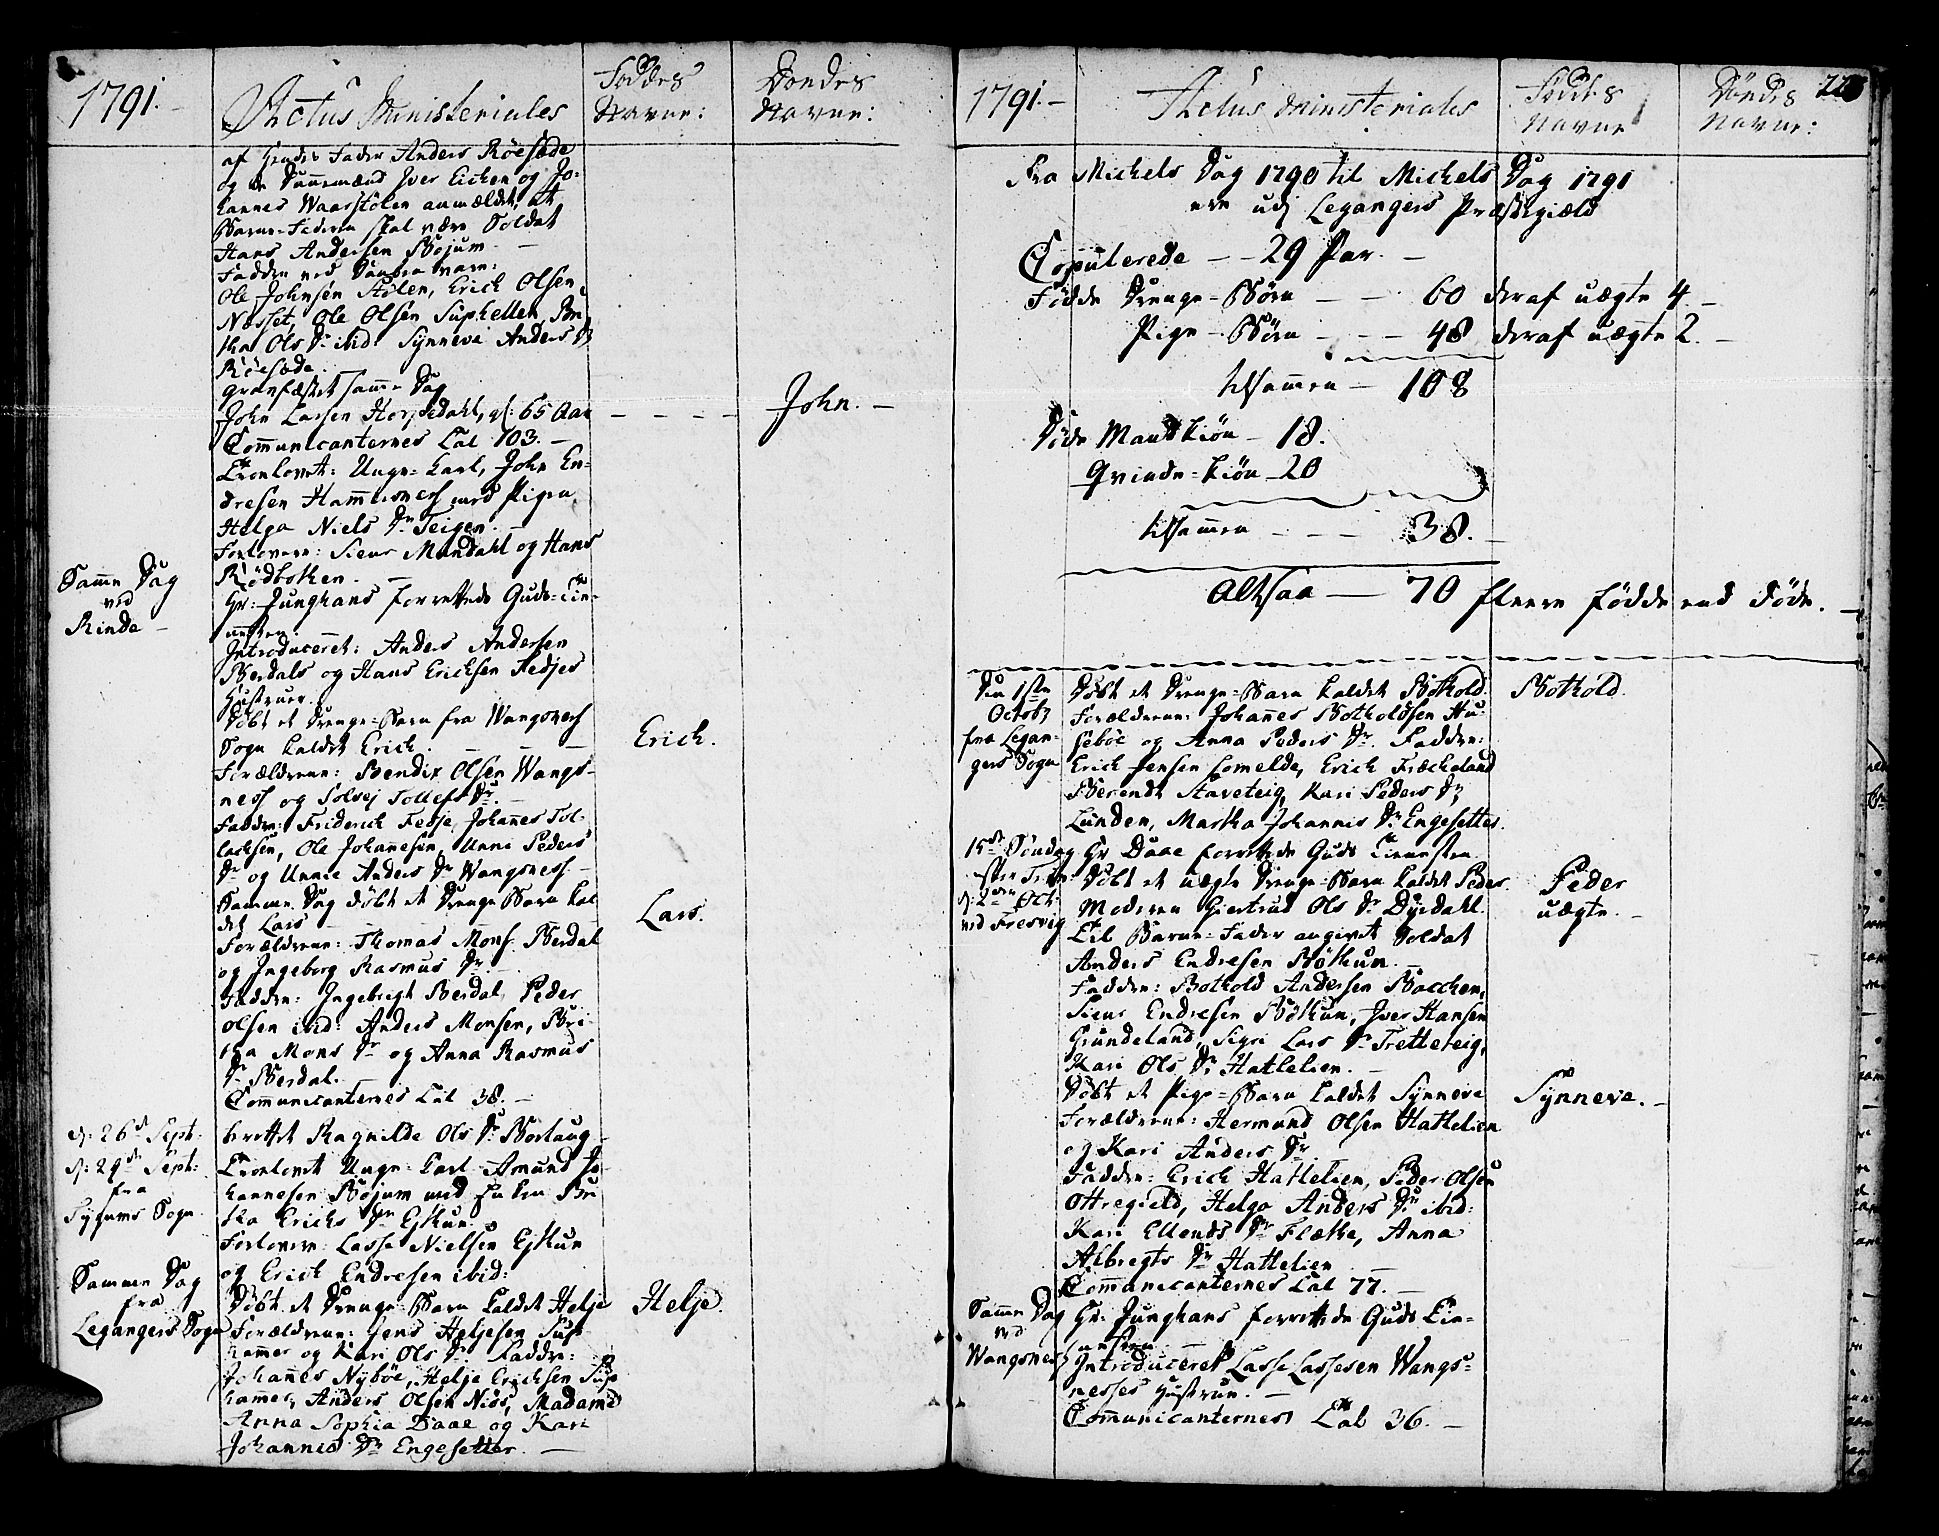 1791.
Actus Ministeriales
Föddes
Navne:
Dondes
Navne:
af hendes Fader Anders Röesæde
og Dannemænd Iver Eichen og Jo-
hannes Waarstölen anmældet, at
Barne-Faderen skal være Soldat
Hans Andersen Böjum
Faddere ved Daaben vare:
Ole Johnsen Stölen, Erich Olsen
Næsset, Ole Olsen Suphellen, Bri-
tha Ols Dr ibid: Synneve Anders Dr
Röesæde.
Granfæstet samme Dag
John Lassen Horpedahl, gl: 65 Aar
John.
Communicanternes Tal 103.
Troelovet: Unge-Karl, John En-
dresen Hammersness med Pigen
Helga Niels Dr Teigen.
Forlovere: Siur Mundahl og Hans
Rödbotten.
Samme Dag
ved
Rinde
Hr: Junghans forrettede Guds-Tie-
nesten.
Introduceret: Anders Andersen
Berdals og Hans Erichsen Fedjes
Hustruer.
Döbt et Drenge-Barn fra Wangsness
Sogn kaldet Erich.
Erich.
Forældrene: Bendix Olsen Wangs-
ness og Solvej Tollefs Dr
Faddere: Friderich Fedje, Johannes Tol-
lachsen, Ole Johanesen, Unni Peders
Dr og Unnie Anders Dr Wangsness.
Samme Dag döbt et Drenge Barn kal-
det Lars
Lars.
Forældrene: Thomas Mons. Berdal
og Ingeborg Rasmus Dr
Faddere: Ingebrigt Berdal, Peder
Olsen ibid: Anders Monsen, Bri-
tha Mons Dr og Anna Rasmus
Dr Berdal.
Communicanternes Tal 38.
d: 26de Sept:
berettet Ragnilde Ols Dr Borlaug
d: 29de Sept:
fra
Sygums Sogn
Troelovet Unge Karl Amund Jo-
hannesen Böjum med Enken Bri-
tha Erichs Dr Ejkun
Forlovere: Lasse Nielsen Ejkun
og Erich Endresen ibid:
Sammen Dag
fra
Legangers Sogn
Döbt et Drenge Barn kaldet Helje
Helje.
Forældrene: Jens Heljesen Sup-
hammer og Kari Ols Dr Faddere:
Johannes Nyböe, Helje Erichsen Sup-
hammer, Anders Olsen Niøs, Madame
Anna Sophia Daae og Kari
Johannes Dr Engesetter.
1791.
Actus Ministeriales
Föddes
Navne
Döndes
Navne:
Fra Michels Dag 1790 til Michels Dag 1791
ere udj Legangers Præstegiæld
Copulerede - - 29 Par.
Födde Drenge-Börn - - 60 deraf uægte 4
Pige-Börn - - - 48 deraf uægte 2.
tilsammen - 108
Döde Mandkiön - 18.
Qvinde-kiön - 20
tilsammen - - - 38.
Altsaa - 70 fleere födde end döde.
Den 1ste
Octobr
fra Legan-
gers Sogn
Döbt et Drenge-Barn kaldet Bothold.
Bothold.
Forældrene: Johannes Botholdsen Hu-
seböe og Anna Peders Dr. Faddere:
Erich Jensen Lomelde, Erich Fræcheland
Berendt Aareteig, Kari Peders Dr
Lunden, Martha Johannis Dr Engesetter.
15de Söndag
efter Trin:
d: 2den Oct:
ved Fresvig
Hr Daae forrettede Guds Tienesten
Döbt et uægte Drenge-Barn kaldet Peder
Peder
uægte.
Moderen Giertrud Ols Dr Dyrdahl.
Til Barne-Fader angivet Soldat
Anders Endresen Böthun
Faddere: Bothold Andersen Bacchen,
Siur Endresen Böthun, Iver Hansen
Grundeland, Sigri Lars Dr Tretteteig,
Kari Ols Dr Hattelien.
Döbt et Pige-Barn kaldet Synneve
Synneve.
Forældrene: Hermund Olsen Hattelien
og Kari Anders Dr
Faddere: Erich Hattelien, Peder Olsen
Ottregield, Helga Anders Dr ibid:
Kari Ellends Dr Flæthe, Anna
Albregts Dr Hattelien
Communicanternes Tal 77.
Samme Dag
ved
Wangsness
Hr: Junghans forrettede Guds Tie-
nesten
Introduceret Lasse Lassesen Wangs-
nesses Hustrue.
Communicanternes Tal 36.